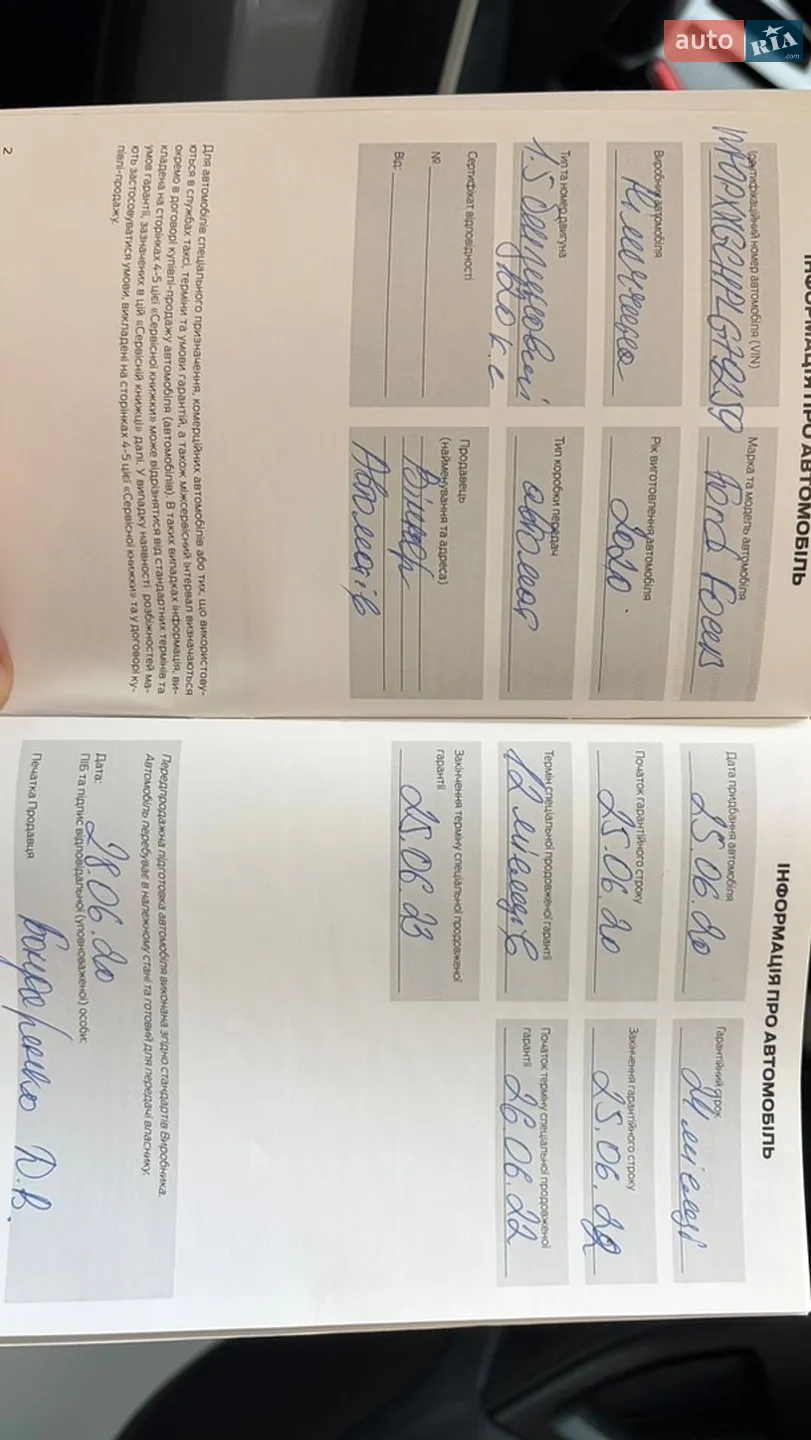 auto RIA .com
ІНФОРМАЦІЯ ПРО АВТОМОБІЛЬ
Ідентифікаційний номер автомобіля (VIN)
Марка та модель автомобіля
Ford Focus
Виробник автомобіля
Німеччина
Рік виготовлення автомобіля
2020.
Тип та номер двигуна
1.5 бензиновий
120 к.с
Тип коробки передач
автомат
Сертифікат відповідності
№
Від:
Продавець
(найменування та адреса)
Вінер
Автомотів
Для автомобілів спеціального призначення, комерційних автомобілів або тих, що використову-
ються в службах таксі, терміни та умови гарантій, а також міжсервісний інтервал визначаються
окремо в договорі купівлі-продажу автомобіля (автомобілів). В таких випадках інформація, ви-
кладена на сторінках 4-5 цієї «Сервісної книжки» може відрізнятися від стандартних термінів та
умов гарантії, зазначених в цій «Сервісній книжці» далі. У випадку наявності розбіжностей ма-
ють застосовуватися умови, викладені на сторінках 4-5 цієї «Сервісної книжки» та у договорі ку-
півлі-продажу.
2
ІНФОРМАЦІЯ ПРО АВТОМОБІЛЬ
Дата придбання автомобіля
25.06.20
Гарантійний строк
24 місяці
Початок гарантійного строку
25.06.20
Закінчення гарантійного строку
25.06.22
Термін спеціальної продовженої гарантії
12 місяців
Початок терміну спеціальної продовженої
гарантії
26.06.22
Закінчення терміну спеціальної продовженої
гарантії
25.06.23
Передпродажна підготовка автомобіля виконана згідно стандартів Виробника.
Автомобіль перебуває в належному стані та готовий для передачі власнику.
Дата:
28.06.20
ПІБ та підпис відповідальної (уповноваженої) особи:
Бондаренко Д.В.
Печатка Продавця